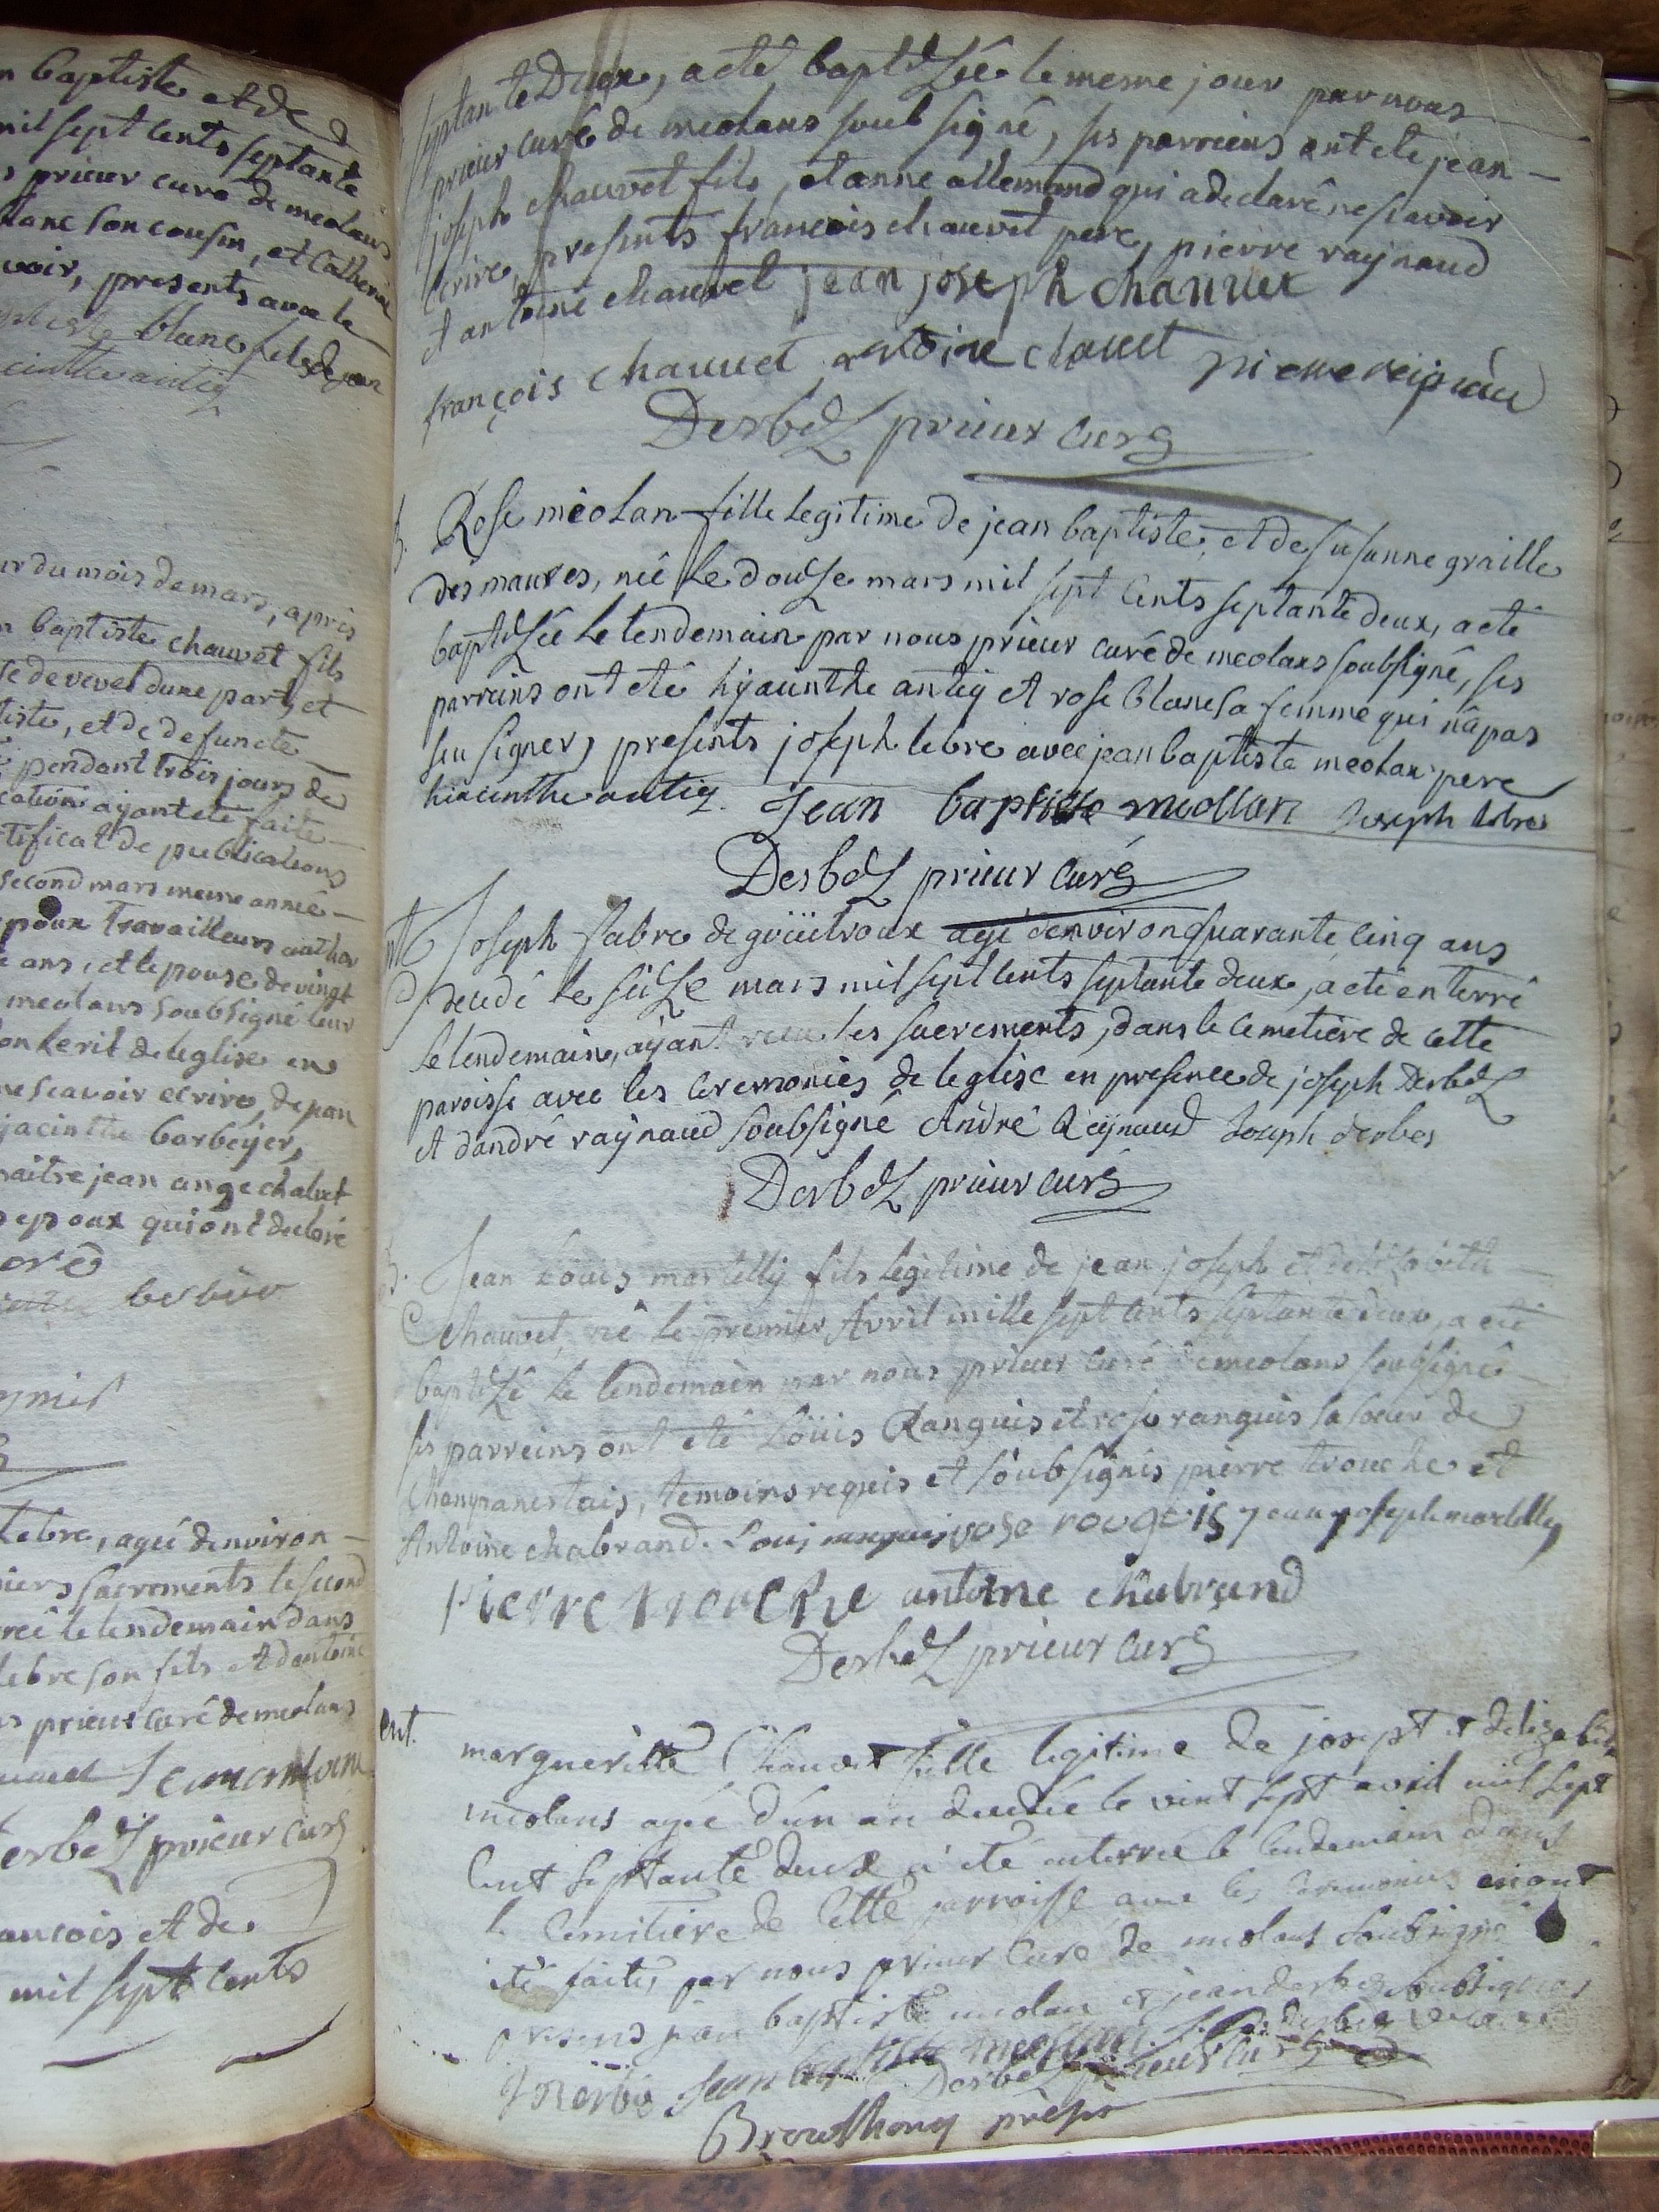 n baptiste et de
mil sept cents septante
prieur curé de meolans
blanc son cousin, et Catherine
voir, presents avec le
blanc fils de jean
cinthe antiq
ur du mois de mars, apres
n baptiste chauvet fils
se de vevet dune part, et
tiste, et de defuncte
pendant trois jours de
cation ayant ete faite
tificat de publications
second mars meme année
poux Travailleurs
ans, et lepouse de vingt
meolans soubsigné leur
on le rit de leglise en
ne scavoir ecrire, de jean
jacinthe barbeyer,
maitre jean ange chalvet
epoux qui ont declaré
lebre, agé denviron
niers sacrements le second
ré le lendemain dans
lebre son fils et dantoine
prieur curé de meolans
erbez prieur curé
ancois et de
mil sept cents
septante Deux, a eté baptisée le meme jour par nous
prieur curé de meolans soub signé, ses parreins ont ete jean
joseph chauvet fils, et anne allemand qui a declaré ne scavoir
ecrire, presents francois chauvet pere, pierre raynaud
et antoine chauvet jean joseph chauvet
françois chauuet antoine chauet pierre reinaud
Derbez prieur curé
b. Rose méolan fille legitime de jean baptiste, et de susanne graille
des maures, née le douse mars mil sept cents septante deux, a eté
baptisée le lendemain par nous prieur curé de meolans soubsigné, ses
parreins ont eté hyacinthe antiq et rose blanc sa femme qui n'a pas
seu signer, presents joseph lebre avec jean baptiste meolan pere
hiacinthe antiq. Jean baptiste meollan Joseph lebre
Derbez prieur curé
Joseph fabre de goüitroux agé denviron quarante cinq ans
decedé le seise mars mil sept cents septante deux, a eté enterré
le lendemain, ayant receu les sacrements, dans le cemetière de cette
paroisse avec les ceremonies de leglise en presence de joseph Derbez
et dandré raynaud soubsigné André Reynaud Joseph derbes
Derbez prieur curé
b. Jean Louis martelly fils legitime de jean joseph et delisabeth
chauvet, né le premier Avril mille sept cents septante deux, a eté
baptisé le lendemain par nous prieur curé de meolans soubsigné
ses parreins ont eté Loüis Ranguis et rose ranguis sa soeur de
temoins requis et soubsignés pierre trouche et
Antoine chabrand. Louis ranguis rose rouguis jean joseph martelly
Pierre trouche antoine chabrand
Derbez prieur curé
ent. margueritte Chauvet fille legitime de josept et delizabeth
méolans agée d'un an decedée le vint sept avril mil sept
cent septante deux a été enterrée le lendemain dans
le Cemitière de cette parroisse avec les ceremonies en ont
été faites par nous prieur curé de meolans soubsigné
presens jean baptiste meolan et jean derbez soubsignés
Jean baptiste meollan
Derbez prieur curé